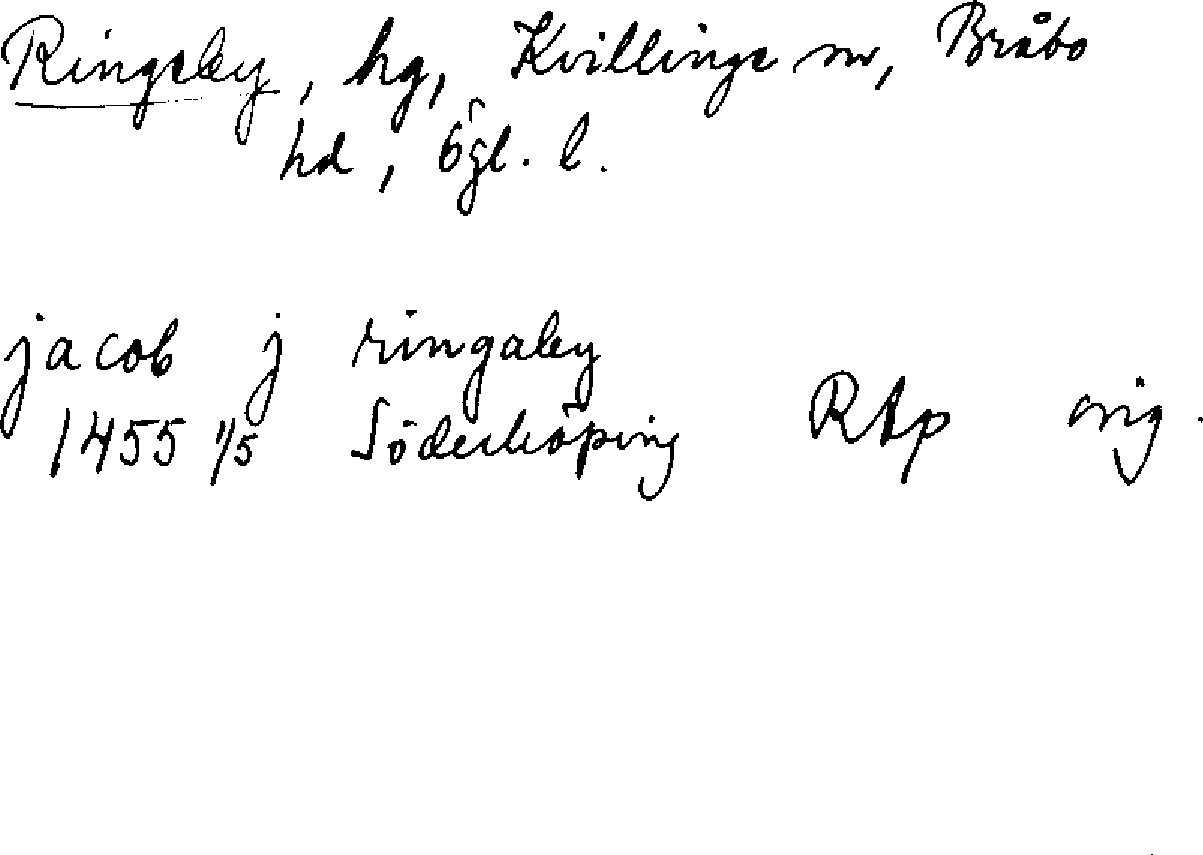 Ringeby, hg, Kvillinge sn, Bråbo
hd, Ögl. l.
jacob j ringaby
1455 1/5 Söderköping RAp orig.